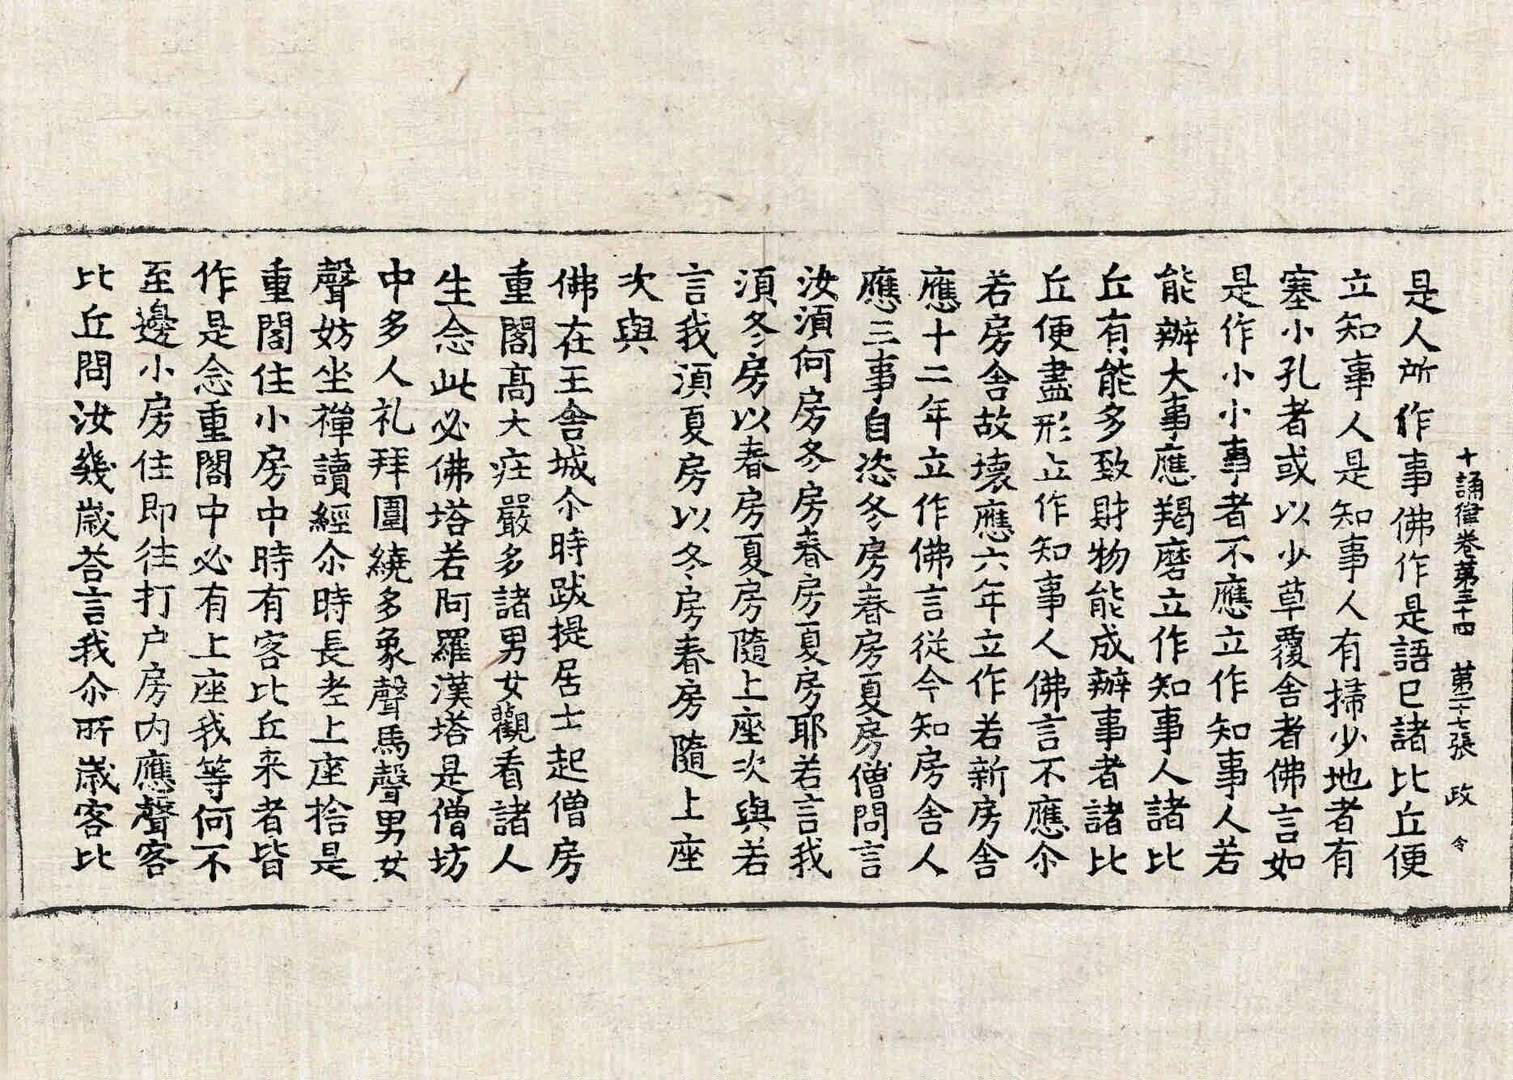 十誦律卷第三十四 第二十七張 政 令
是人所作事佛作是語已諸比丘便
立知事人是知事人有掃少地者有
塞小孔者或以少草覆舍者佛言如
是作小小事者不應立作知事人若
能辦大事應羯磨立作知事人諸比
丘有能多致財物能成辦事者諸比
丘便盡形立作知事人佛言不應尒
若房舍故壞應六年立作若新房舍
應十二年立作佛言從今知房舍人
應三事自恣冬房春房夏房僧問言
汝湏何房冬房春房夏房耶若言我
湏冬房以春房夏房隨上座次與若
言我湏夏房以冬房春房隨上座
次與
佛在王舍城尒時跋提居士起僧房
重閣高大庄嚴多諸男女觀看諸人
生念此必佛塔若阿羅漢塔是僧坊
中多人礼拜圍繞多象聲馬聲男女
聲妨坐禪讀經尒時長老上座捨是
重閣住小房中時有客比丘来者皆
作是念重閣中必有上座我等何不
至邊小房住即往打户房内應聲客
比丘問汝幾歲荅言我尒所歲客比